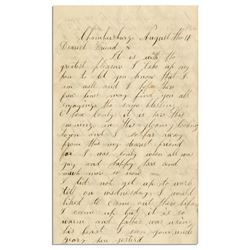 Chambersburg August the 14
Dearest Friend
It is with the
greatest pleasure I take up my
pen to let you know that I
am well and I hope these
few lines may find you all
enjoying the same blessing
O how lonely it is here this
morning in this gloomy looking
town and I so far away
from thee my dearest friend
for I was lonely when all was
gay and happy here and
much more so now
I did not get up to
till on wednesday I would
liked to came out there before
I came up but it is so
warm and father was using
his horse I can